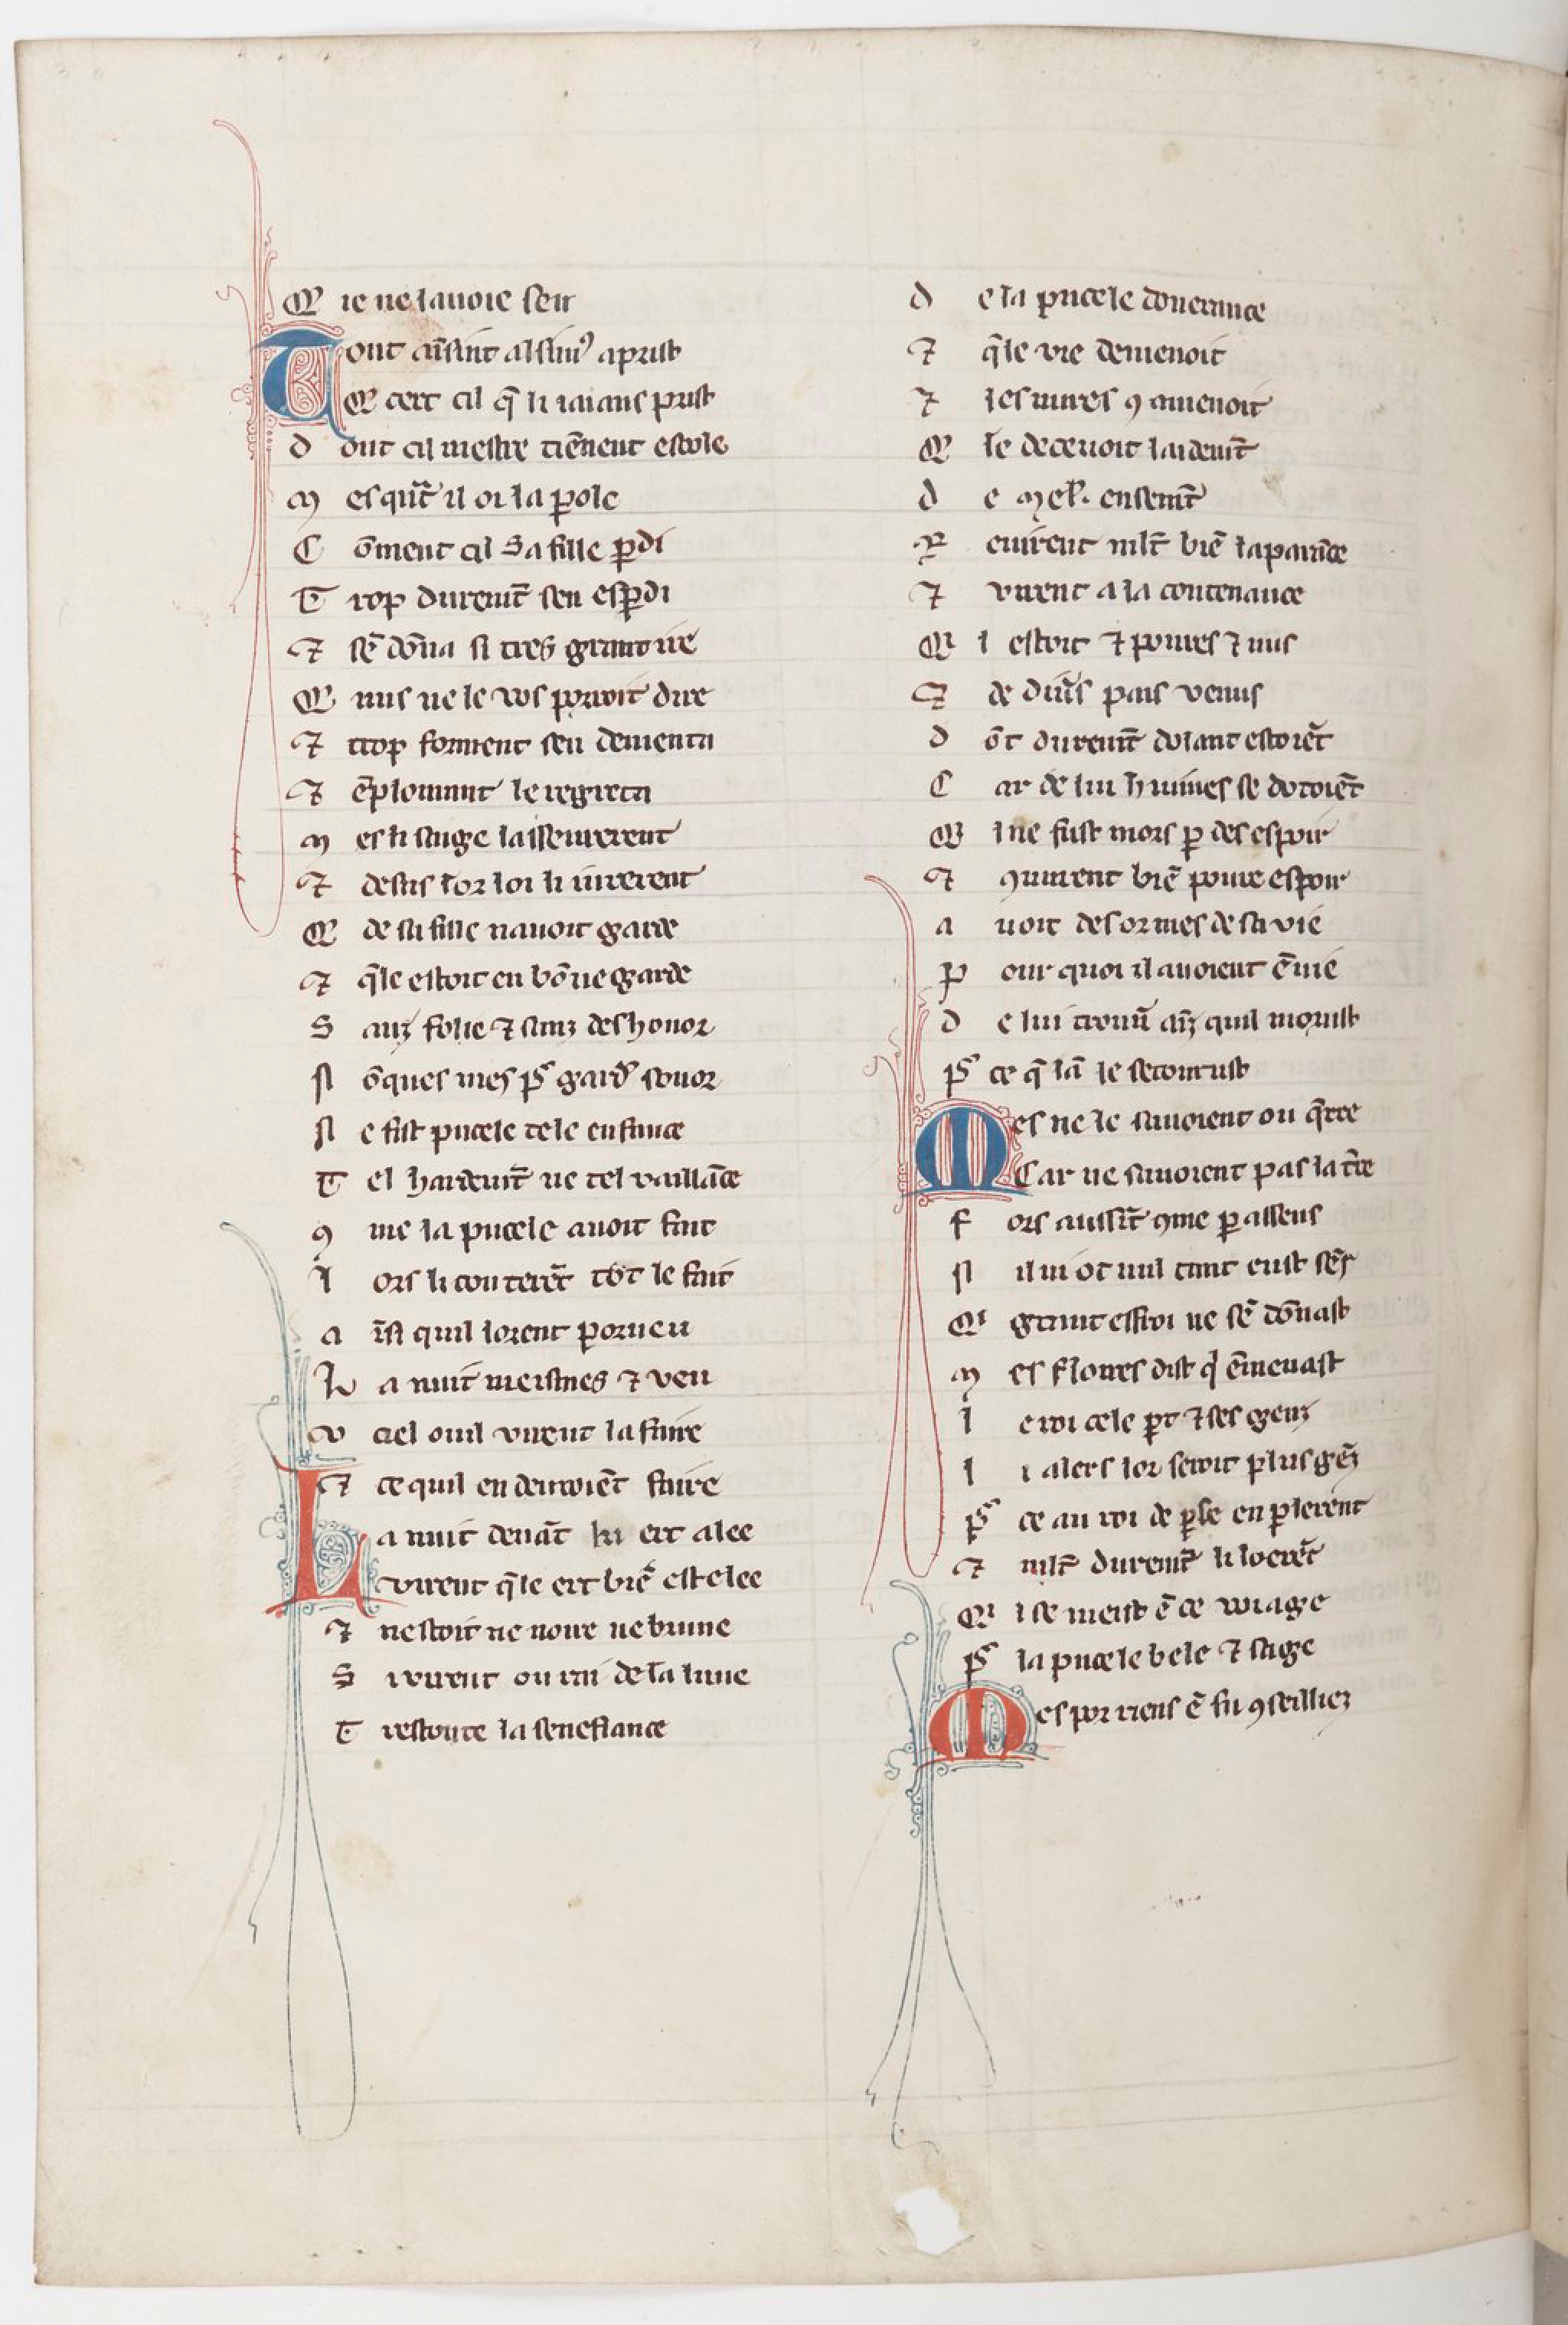 Q ie ne lauoie seir
Tout ausint alsimꝰ aprist
Q cert cil q̃ li iaians prist
d ont cil mestre tiẽnent escole
m es qũt il oi la ꝑole
C õment cil sa fille ꝑdi
T rop duremt̃ sen esꝑdi
⁊ sẽ dõna si tres grant ire
Q nus ne le vos porroit dire
⁊ trop forment sen dementa
⁊ ẽplourant le regreta
m es li sauge lasseurerent
⁊ desus lor loi li iurerent
Q de sa fille nauoit garde
⁊ q̃le estoit en bõne garde
S anz folie ⁊ sanz deshonor
N õques mes pͬ gardͬ sonor
N e fist pucele tele enfance
T el hardemt̃ ne tel vaillãce
ꝯ me la pucele auoit fait
l ors li conterẽt tot le fait
a ĩsi quil lorent porueu
L a nuit meismes ⁊ veu
v ciel ouil virent la faire
⁊ ce quil en deuroiẽt faire
La nuit deuãt ki ert alee
virent q̃le ert biẽ estelee
⁊ nestoit ne noire ne brune
S i virent ou rai de la lune
T restoute la senefiance
d e la pucele doneurance
⁊ q̃le vie demenoit
⁊ les iaures ꝯ amenoit
Q le deceuoit laidemt̃
d e mel'. ensemt̃
R euirent mlt̃ biẽ laparãce
⁊ virent a la contenance
Q i estoit ⁊ poures ⁊ nus
⁊ de diũs pais venus
d õt duremt̃ dolant estoiẽt
C ar de lui h meimes se dotoiẽt
Q l ne fust mors ꝑ desespoir
⁊ ꝯnurent biẽ poure espoir
a uoit desormes de sa vie
P our quoi il auoient ẽuie
d e lui trouũ ãz quil morust
pͬ ce q̃ lã le secourust
Mes ne le sauoient ou q̃rre
Car ne sauoient pas la t̃re
f ors aussit̃ ꝯme ꝑ assens
N il ni ot nul tant eust sẽs
Qͥ grant effroi ne sẽ dõnast
m es floires dist qͥ ẽmenast
l e roi cele part ⁊ ses genz
l i alers lor seroit plus gẽz
pͬ ce au roi de ꝑse en ꝑlerent
⁊ mlt̃ duremt̃ li loerẽt
Qͥ i se meist ẽ ce voiage
pͬ la pucele bele ⁊ sage
Mes por riens ẽ fu ꝯseilliez